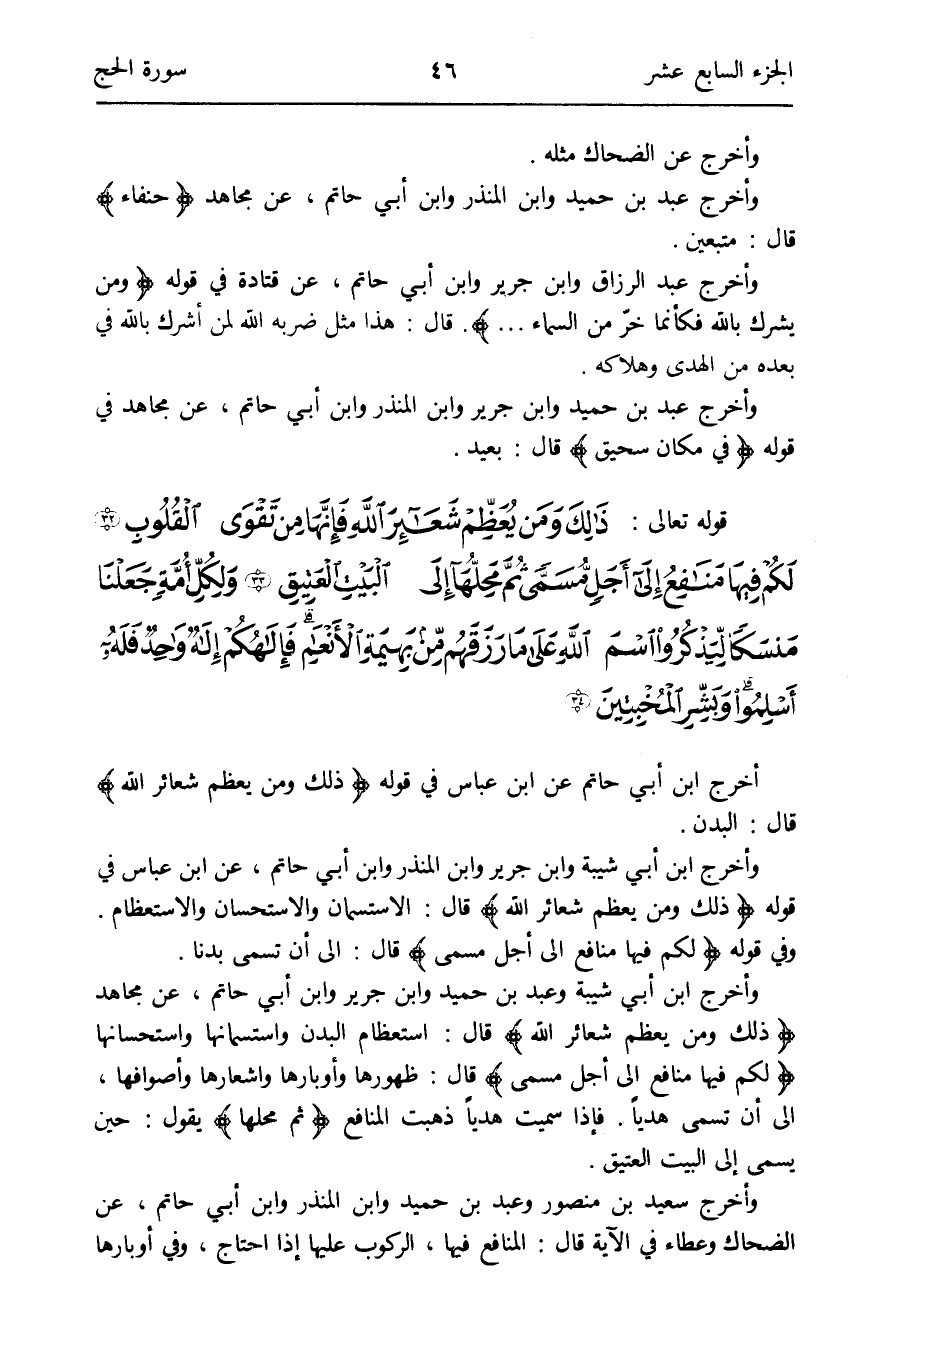 الجزء السابع عشر ٤٦ سورة الحج
وأخرج عن الضحاك مثله .
وأخرج عبد بن حميد وابن المنذر وابن أبي حاتم ، عن مجاهد ﴿ حنفاء ﴾
قال : متبعين .
وأخرج عبد الرزاق وابن جرير وابن أبي حاتم ، عن قتادة في قوله ﴿ ومن
يشرك بالله فكأنما خرّ من السماء ... ﴾. قال : هذا مثل ضربه الله لمن أشرك بالله في
بعده من الهدى وهلاكه .
وأخرج عبد بن حميد وابن جرير وابن المنذر وابن أبي حاتم ، عن مجاهد في
قوله ﴿ في مكان سحيق ﴾ قال : بعيد .
قوله تعالى : ذَٰلِكَ وَمَن يُعَظِّمْ شَعَـٰٓئِرَ ٱللَّهِ فَإِنَّهَا مِن تَقْوَى ٱلْقُلُوبِ ۝٣٢
لَكُمْ فِيهَا مَنَـٰفِعُ إِلَىٰٓ أَجَلٍ مُّسَمًّى ثُمَّ مَحِلُّهَآ إِلَى ٱلْبَيْتِ ٱلْعَتِيقِ ۝٣٣ وَلِكُلِّ أُمَّةٍ جَعَلْنَا
مَنسَكًا لِّيَذْكُرُوا۟ ٱسْمَ ٱللَّهِ عَلَىٰ مَا رَزَقَهُم مِّنۢ بَهِيمَةِ ٱلْأَنْعَـٰمِ ۗ فَإِلَـٰهُكُمْ إِلَـٰهٌ وَٰحِدٌ فَلَهُۥٓ
أَسْلِمُوا۟ ۗ وَبَشِّرِ ٱلْمُخْبِتِينَ ۝٣٤
أخرج ابن أبي حاتم عن ابن عباس في قوله ﴿ ذلك ومن يعظم شعائر الله ﴾
قال : البدن .
وأخرج ابن أبي شيبة وابن جرير وابن المنذر وابن أبي حاتم ، عن ابن عباس في
قوله ﴿ ذلك ومن يعظم شعائر الله ﴾ قال : الاستسمان والاستحسان والاستعظام .
وفي قوله ﴿ لكم فيها منافع الى أجل مسمى ﴾ قال : الى أن تسمى بدنا .
وأخرج ابن أبي شيبة وعبد بن حميد وابن جرير وابن أبي حاتم ، عن مجاهد
﴿ ذلك ومن يعظم شعائر الله ﴾ قال : استعظام البدن واستسمانها واستحسانها
﴿ لكم فيها منافع الى أجل مسمى ﴾ قال : ظهورها وأوبارها واشعارها وأصوافها ،
الى أن تسمى هدياً . فإذا سميت هدياً ذهبت المنافع ﴿ ثم محلها ﴾ يقول : حين
يسمى إلى البيت العتيق .
وأخرج سعيد بن منصور وعبد بن حميد وابن المنذر وابن أبي حاتم ، عن
الضحاك وعطاء في الآية قال : المنافع فيها ، الركوب عليها إذا احتاج ، وفي أوبارها